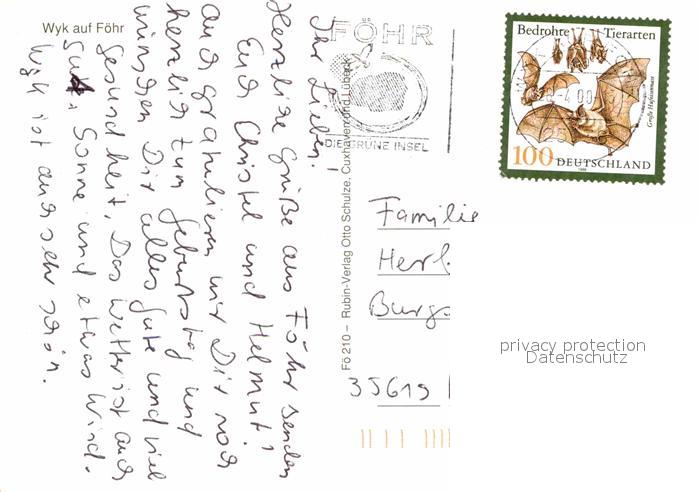 Wyk auf Föhr
Ihr Lieben!
Herzliche Grüße aus Föhr senden
Euch Christel und Helmut!
Auch gratulieren wir Dir noch
herzlich zum Geburtstag und
wünschen Dir alles Gute und viel
Gesundheit. Das Wetter ist auch
gut, Sonne und etwas Wind.
Wyk ist auch sehr schön.
Fö 210 – Rubin-Verlag Otto Schulze, Cuxhavenrund, Lübeck
FÖHR
DIE GRÜNE INSEL
Bedrohte Tierarten
Große Hufeisennase
100 DEUTSCHLAND
1999
Familie
Herl.
Burgs
35619
privacy protection
Datenschutz